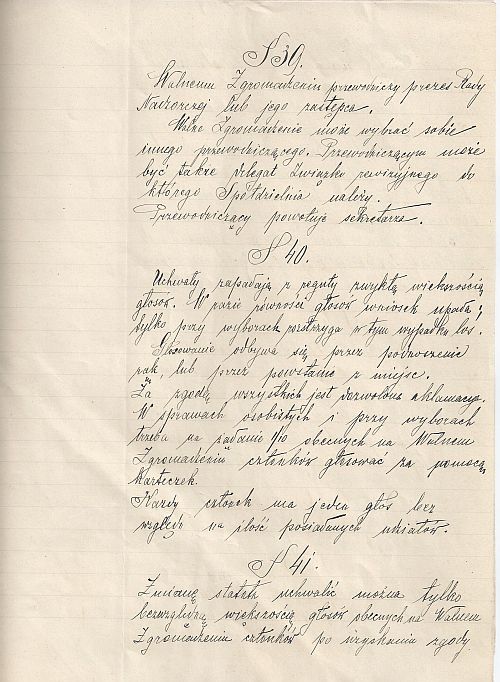 § 39.
Walnemu Zgromadzeniu przewodniczy prezes Rady
Nadzorczej lub jego zastępca.
Walne Zgromadzenie może wybrać sobie
innego przewodniczącego. Przewodniczącym może
być także delegat Związku rewizyjnego do
którego Spółdzielnia należy.
Przewodniczący powołuje sekretarza.
§ 40.
Uchwały zapadają z reguły zwykłą większością
głosów. W razie równości głosów wniosek upada;
tylko przy wyborach rozstrzyga w tym wypadku los.
Głosowanie odbywa się przez podnoszenie
rąk, lub przez powstanie z miejsc.
Za zgodą wszystkich jest dozwolona aklamacja.
W sprawach osobistych i przy wyborach
trzeba na żądanie 1/10 obecnych na Walnem
Zgromadzeniu członków głosować za pomocą
karteczek.
Każdy członek ma jeden głos bez
względu na ilość posiadanych udziałów.
§ 41.
Zmianę statutu uchwalić można tylko
bezwzględną większością głosów obecnych na Walnem
Zgromadzeniu członków po uzyskaniu zgody